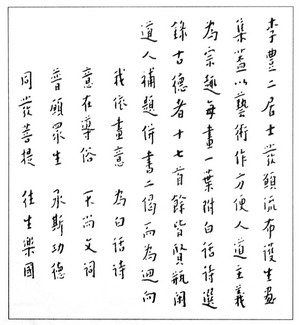 李豐二居士發願流布護生畫
集蓋以藝術作方便人道主義
為宗趣每畫一葉附白話詩選
錄古德者十七首餘皆賢瓶閒
道人補題併書二偈而為迴向
我依畫意 為白話詩
意在導俗 不尚文詞
普願眾生 承斯功德
同發菩提 往生樂國